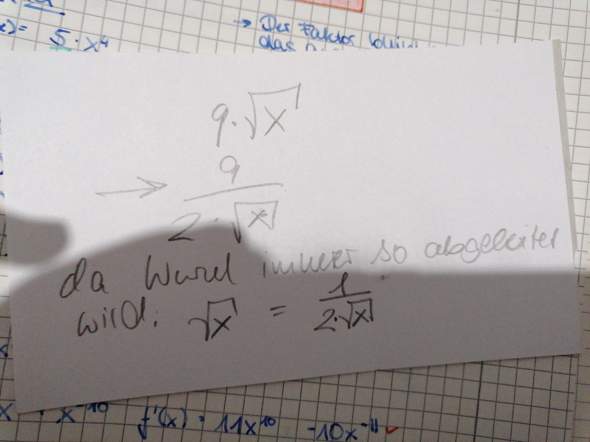 5 · x⁴
→ Der Faktor
das
9 · √x
→ 9 / (2 · √x)
da Wurzel immer so abgeleitet
wird: √x = 1 / (2·√x)
x⁻¹⁰ f'(x) = 11x¹⁰ -10x⁻¹¹